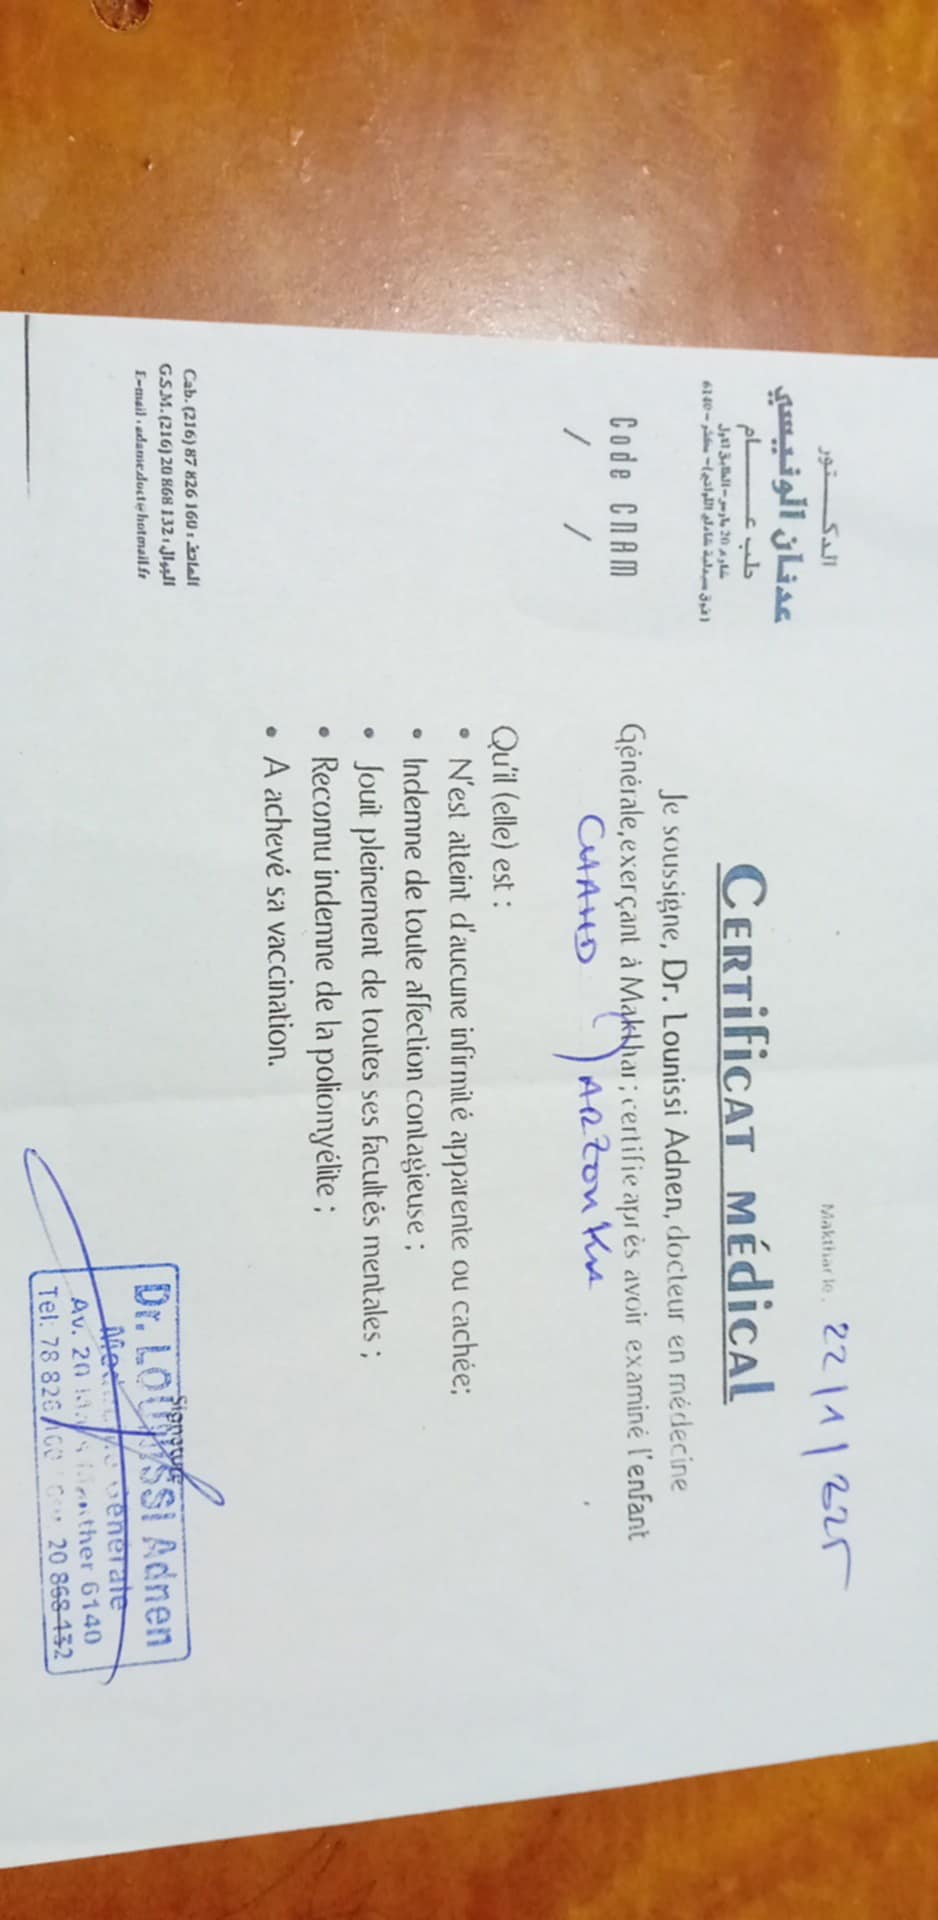 الدكتور
عدنان الونيسي
طب عام
شارع 20 مارس - الطابق الأول
(فوق صيدلية شادلي اللواتي) - مكثر - 6140
Code CNAM
/ /
Makthar le, 22/11/225
CERTIFICAT MÉDICAL
Je soussigne, Dr. Lounissi Adnen, docteur en médecine
Générale, exerçant à Makthar; certifie après avoir examiné l'enfant
CHAHD
Qu'il (elle) est :
• N'est atteint d'aucune infirmité apparente ou cachée;
• Indemne de toute affection contagieuse ;
• Jouit pleinement de toutes ses facultés mentales ;
• Reconnu indemne de la poliomyélite ;
• A achevé sa vaccination.
Cab. (216) 87 826 160 : الهاتف
G.S.M. (216) 20 868 132 : الجوال
E-mail : adame.doct@hotmail.fr
Signature
Dr. LOUNISSI Adnen
Générale
Av. 20 6140
Tel: 78 826 160 20 868 132